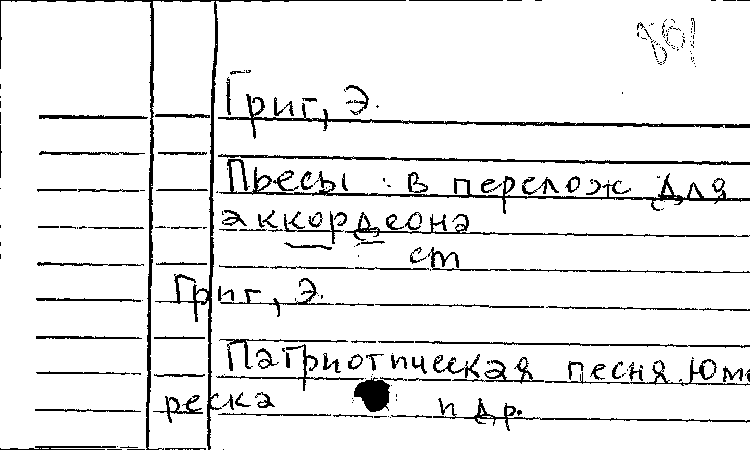 Григ, Э.
Пьесы : в перелож для
аккордеона
ст
Григ, Э.
Патриотическая песня. Юмо
реска и др.